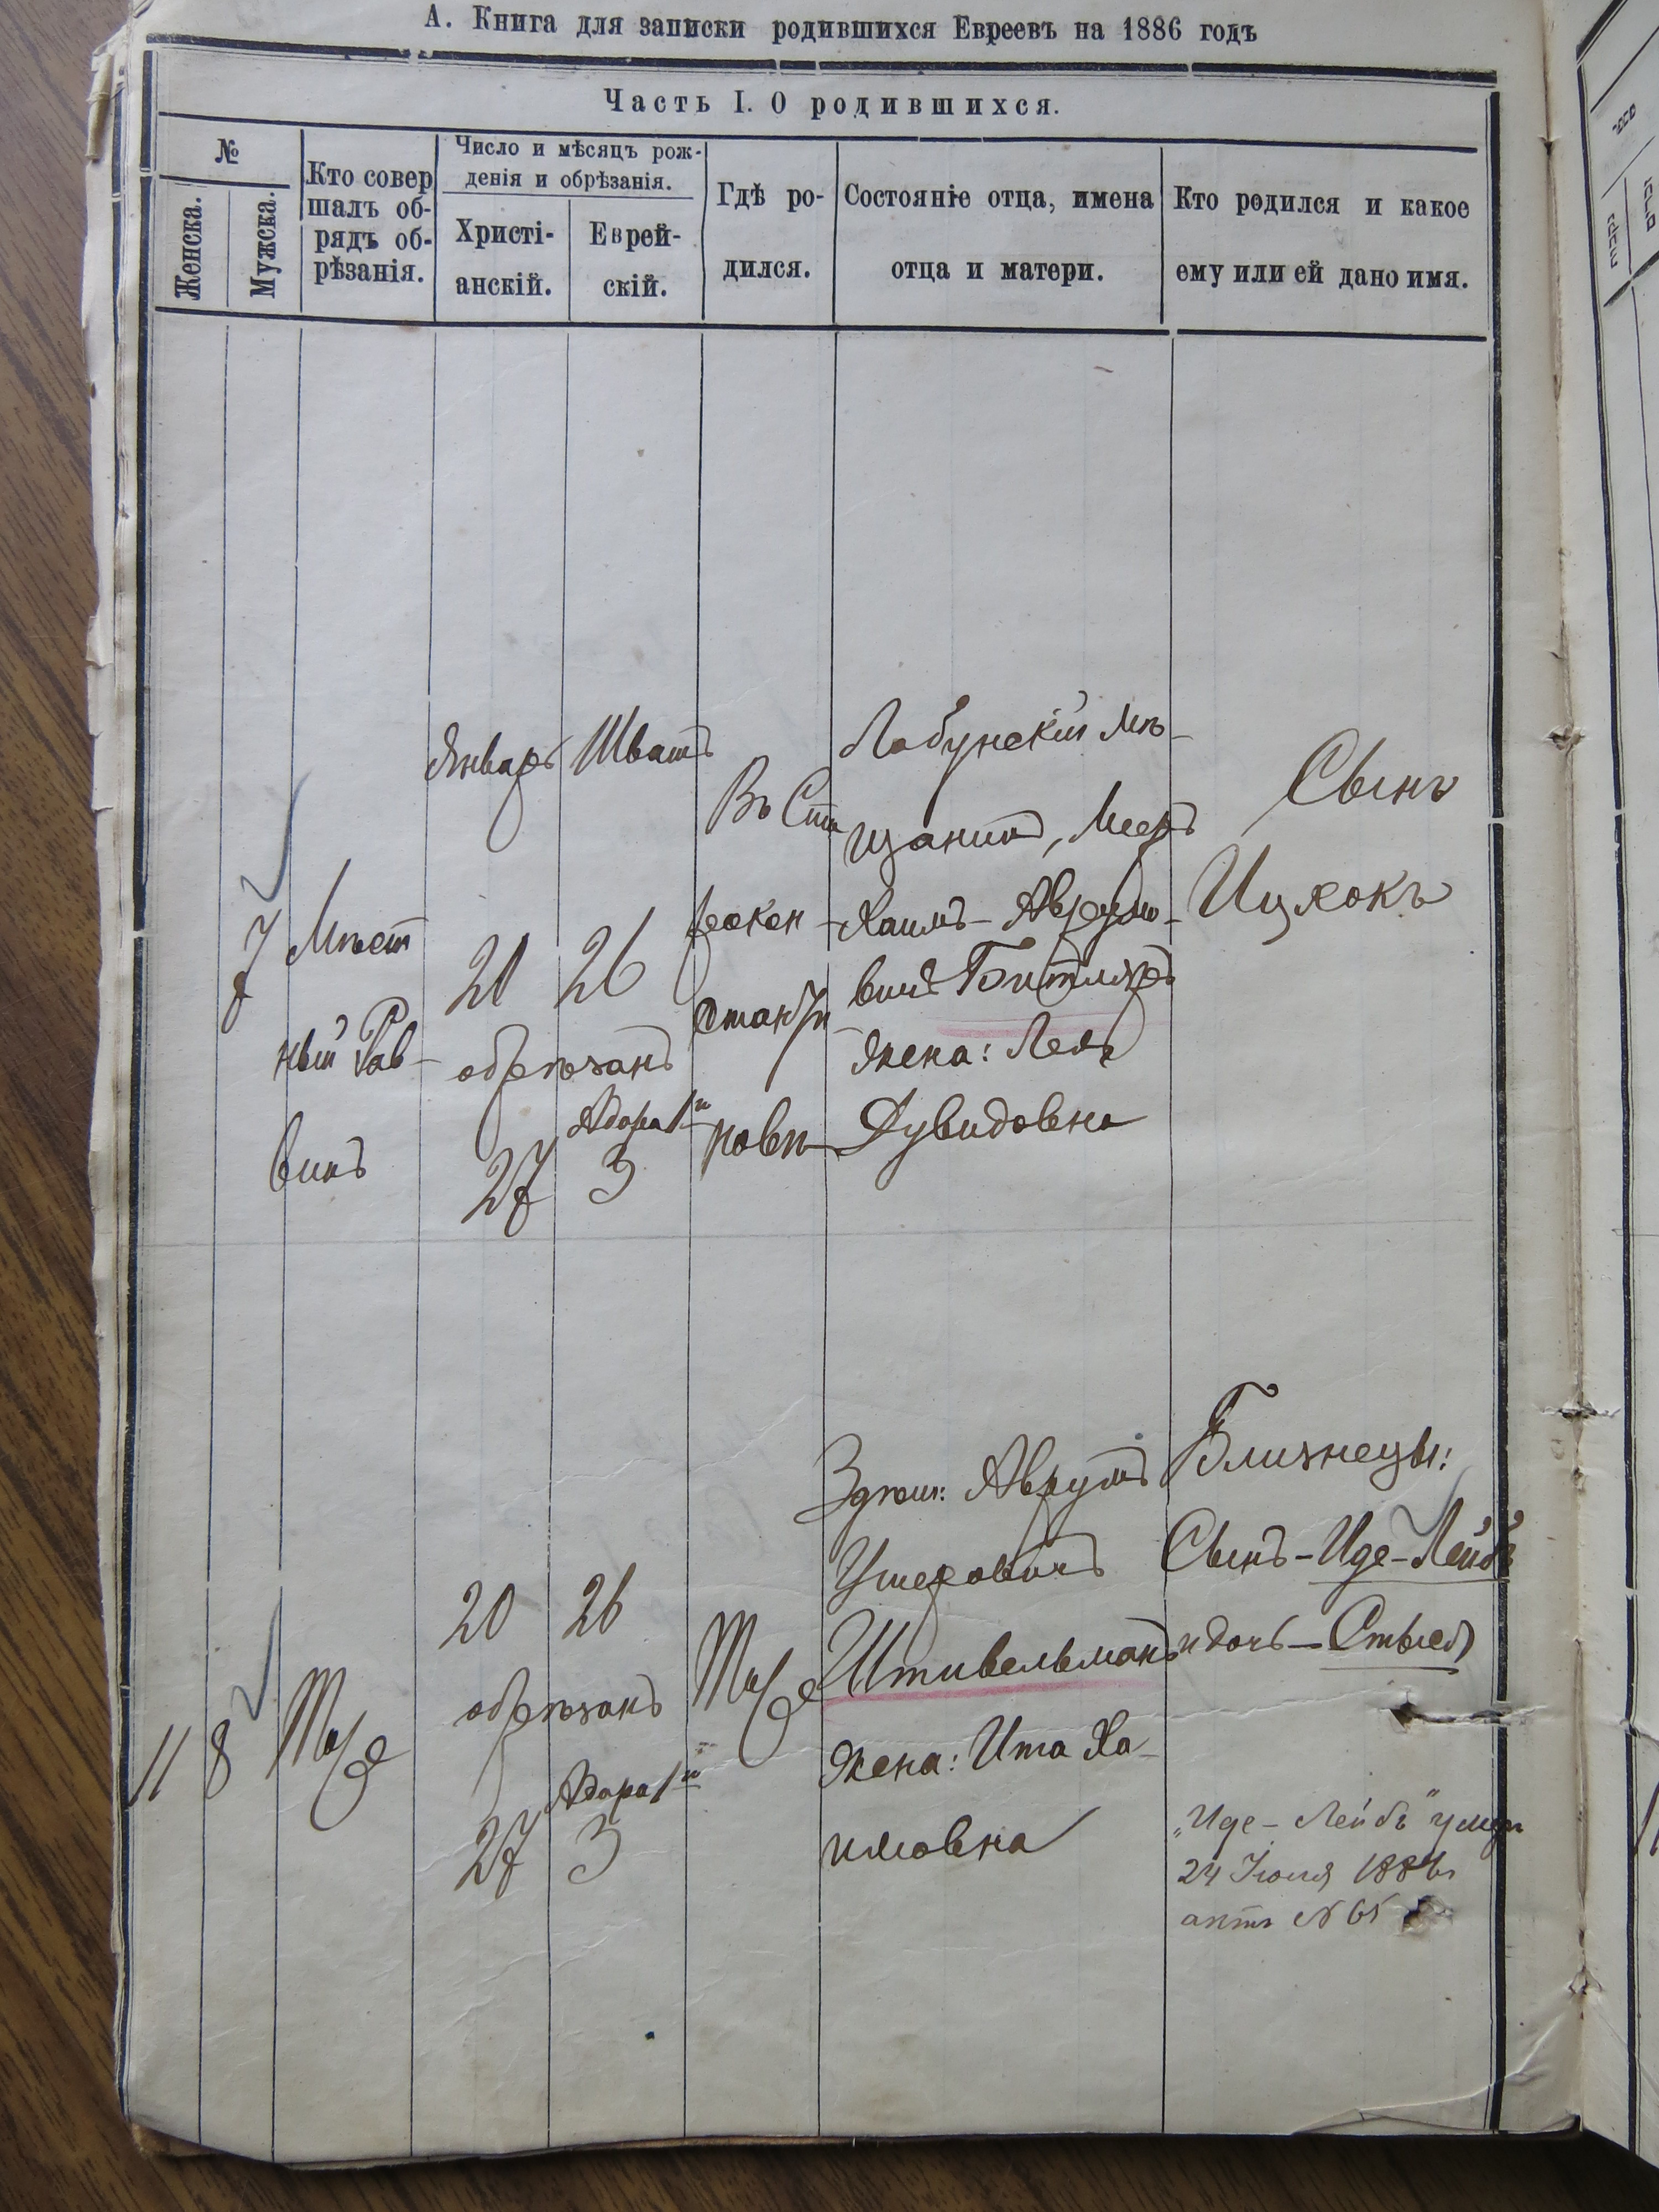 А. Книга для записки родившихся Евреевъ на 1886 годъ
Часть I. О родившихся.
№
Женска.
Мужска.
Кто совер
шалъ об-
рядъ об-
рѣзанія.
Число и мѣсяцъ рож-
денія и обрѣзанія.
Христі-
анскій.
Еврей-
скій.
Гдѣ ро-
дился.
Состояніе отца, имена
отца и матери.
Кто родился и какое
ему или ей дано имя.
7
Мѣст
ный Рав-
винъ
Январь
20
обрѣзанъ
27
Шватъ
26
Адара 1й
3
Въ Ста
рокон-
стан/ти
повѣ
Лабунскій мѣ-
щанинъ, Мееръ
Хаимъ-Аврумо-
вичъ Гитляръ
Жена: Лея
Дувидовна
Сынъ
Ицхокъ
11
8
Тоже
20
обрѣзанъ
27
26
Адара 1й
3
Тоже
Здѣш: Аврумъ
Ушеровичъ
Штивельманъ
Жена: Ита Ха-
имовна
Близнецы:
Сынъ-Иде-Лейбъ
и дочь-Стыся
"Иде-Лейбъ" умеръ
24 Іюля 1886г
актъ №